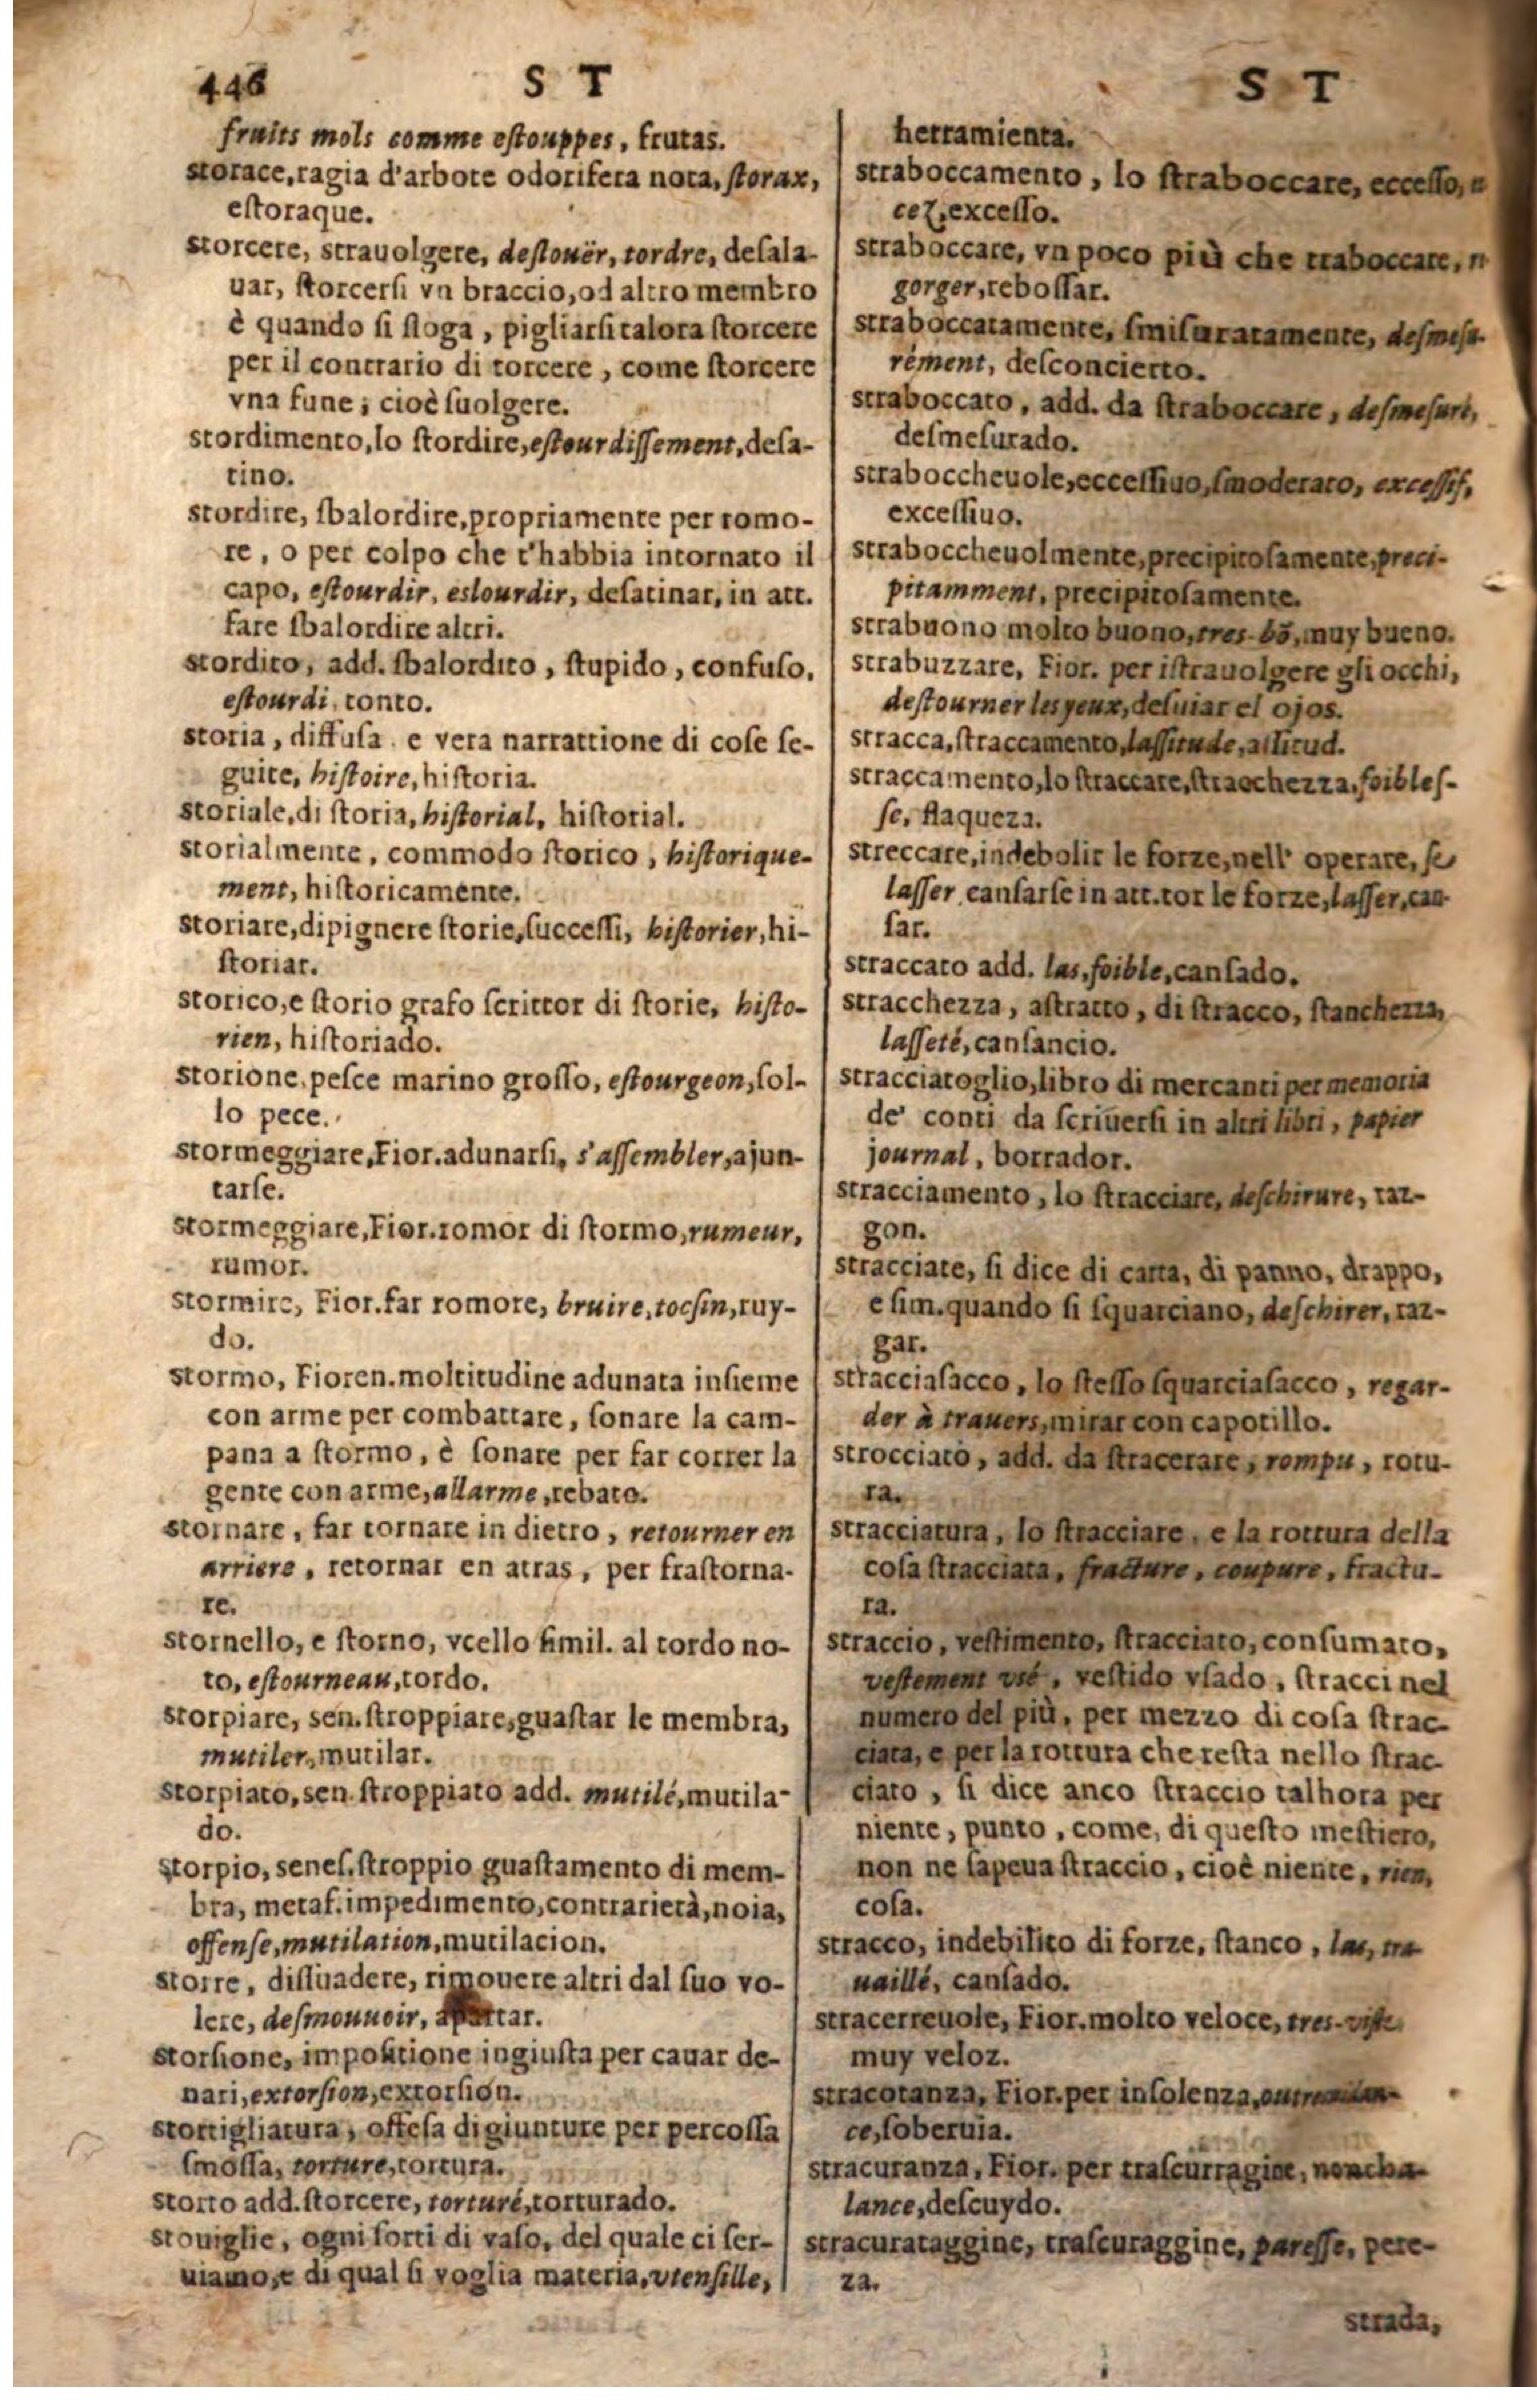 446 S T
fruits mols comme eſtouppes, frutas.
storace, ragia d'arbore odorifera nota, ſtorax,
eſtoraque.
storcere, stravolgere, deſtouër, tordre, deſala-
uar, ſtorcerſi vn braccio, od altro membro
è quando ſi ſloga, pigliarſi talora ſtorcere
per il contrario di torcere, come ſtorcere
vna fune; cioè ſuolgere.
stordimento, lo ſtordire, eſtourdiſſement, deſa-
tino.
stordire, ſbalordire, propriamente per romo-
re, o per colpo che t'habbia intornato il
capo, eſtourdir, eslourdir, deſatinar, in att.
fare ſbalordire altri.
stordito, add. ſbalordito, ſtupido, confuſo,
eſtourdi, tonto.
storia, diffuſa e vera narrattione di coſe ſe-
guite, hiſtoire, hiſtoria.
storiale, di ſtoria, hiſtorial, hiſtorial.
storialmente, commodo ſtorico, hiſtorique-
ment, hiſtoricamente.
storiare, dipignere ſtorie, ſucceſſi, hiſtorier, hi-
ſtoriar.
storico, e ſtorio grafo ſcrittor di ſtorie, hiſto-
rien, hiſtoriado.
storione, peſce marino groſſo, eſtourgeon, ſol-
lo pece.
stormeggiare, Fior. adunarſi, s'aſſembler, ajun-
tarſe.
stormeggiare, Fior. romor di ſtormo, rumeur,
rumor.
stormire, Fior. far romore, bruire, tocſin, ruy-
do.
stormo, Fioren. moltitudine adunata inſieme
con arme per combattare, ſonare la cam-
pana a ſtormo, è ſonare per far correr la
gente con arme, allarme, rebato.
stornare, far tornare in dietro, retourner en
arriere, retornar en atras, per fraſtorna-
re.
stornello, e ſtorno, vcello ſimil. al tordo no-
to, eſtourneau, tordo.
storpiare, sen. ſtroppiare, guaſtar le membra,
mutiler, mutilar.
storpiato, sen. ſtroppiato add. mutilé, mutila-
do.
storpio, seneſ. ſtroppio guaſtamento di mem-
bra, metaf. impedimento, contrarietà, noia,
offenſe, mutilation, mutilacion.
storre, diſſuadere, rimouere altri dal ſuo vo-
lere, deſmouuoir, apartar.
storſione, impoſitione ingiuſta per cauar de-
nari, extorſion, extorſion.
stortigliatura, offeſa di giunture per percoſſa
ſmoſſa, torture, tortura.
storto add. ſtorcere, torturé, torturado.
stouiglie, ogni ſorti di vaſo, del quale ci ſer-
uiamo, e di qual ſi voglia materia, vtenſille,
S T
herramienta.
straboccamento, lo ſtraboccare, ecceſſo,
cez, exceſſo.
straboccare, vn poco più che traboccare,
gorger, reboſſar.
straboccatamente, ſmiſuratamente, deſmeſu-
rément, deſconcierto.
straboccato, add. da ſtraboccare, deſmeſuré,
deſmeſurado.
straboccheuole, ecceſſiuo, ſmoderato, exceſſif,
exceſſiuo.
straboccheuolmente, precipitoſamente, preci-
pitamment, precipitoſamente.
strabuono molto buono, tres-bõ, muy bueno.
strabuzzare, Fior. per iſtrauolgere gli occhi,
deſtourner les yeux, deſuiar el ojos.
stracca, ſtraccamento, laſſitude,
straccamento, lo ſtraccare, ſtracchezza, foibleſ-
ſe, flaqueza.
streccare, indebolir le forze, nell' operare, ſe
laſſer canſarſe in att. tor le forze, laſſer, can-
ſar.
straccato add. las, foible, canſado.
stracchezza, aſtratto, di ſtracco, ſtanchezza,
laſſeté, canſancio.
stracciatoglio, libro di mercanti per memoria
de' conti da ſcriuerſi in altri libri, papier
journal, borrador.
stracciamento, lo ſtracciare, deſchirure, raz-
gon.
stracciate, ſi dice di carta, di panno, drappo,
e ſim. quando ſi ſquarciano, deſchirer, raz-
gar.
stracciaſacco, lo ſteſſo ſquarciaſacco, regar-
der à trauers, mirar con capotillo.
strocciatò, add. da ſtracerare, rompu, rotu-
ra.
stracciatura, lo ſtracciare, e la rottura della
coſa ſtracciata, fracture, coupure, fractu-
ra.
straccio, veſtimento, ſtracciato, conſumato,
veſtement vsé, veſtido vſado, ſtracci nel
numero del più, per mezzo di coſa ſtrac-
ciata, e per la rottura che reſta nello ſtrac-
ciato, ſi dice anco ſtraccio talhora per
niente, punto, come, di queſto meſtiero,
non ne ſapeua ſtraccio, cioè niente, rien,
coſa.
stracco, indebilito di forze, ſtanco, las, tra-
uaillé, canſado.
stracerreuole, Fior. molto veloce, tres-viſte
muy veloz.
stracotanza, Fior. per inſolenza,
ce, ſoberuia.
stracuranza, Fior. per traſcurragine, noncha-
lance, deſcuydo.
stracurataggine, traſcuraggine, pareſſe, pere-
za.
strada,